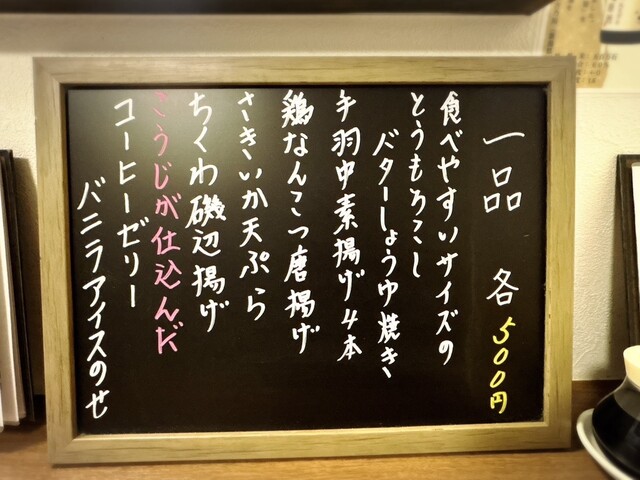 一品 各500円
食べやすいサイズの
とうもろこし
バターしょうゆ焼き
手羽中素揚げ4本
鶏なんこつ唐揚げ
さきいか天ぷら
ちくわ磯辺揚げ
こうじが仕込んだ
コーヒーゼリー
バニラアイスのせ